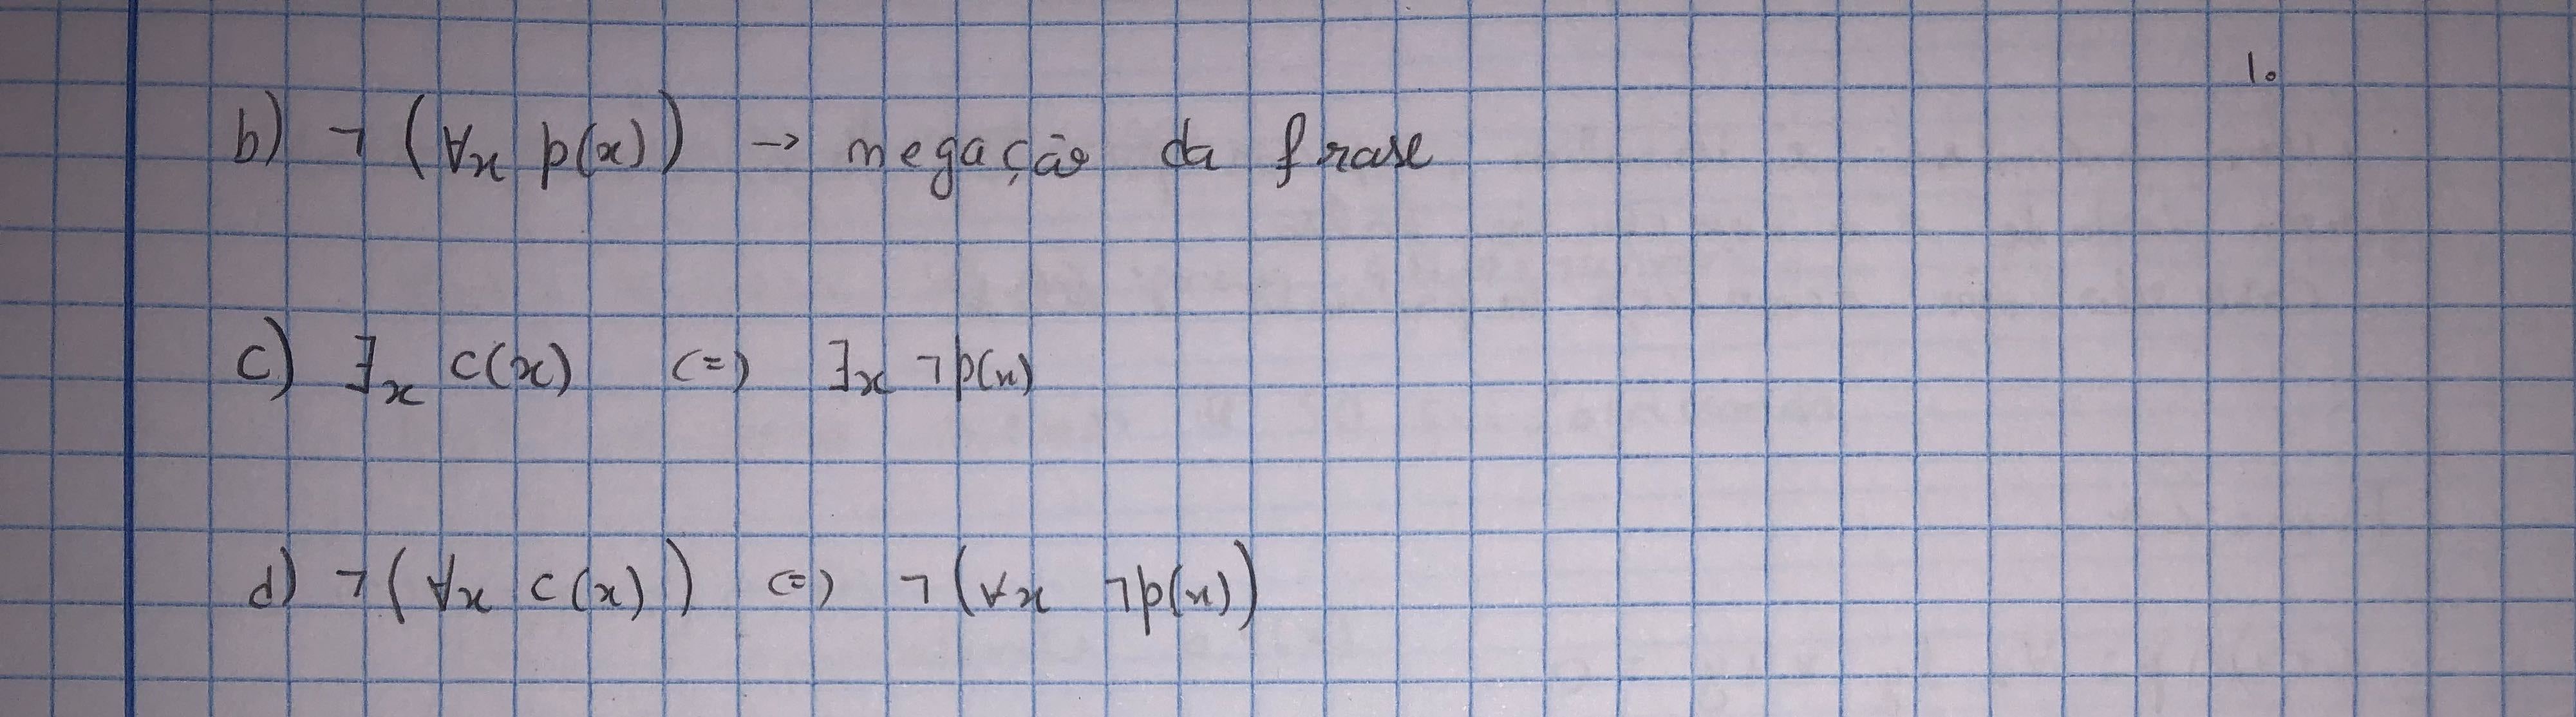 1.
b) ¬ (∀x p(x)) → negação da frase
c) ∃x c(x) (=) ∃x ¬p(x)
d) ¬(∀x c(x)) (=) ¬(∀x ¬p(x))